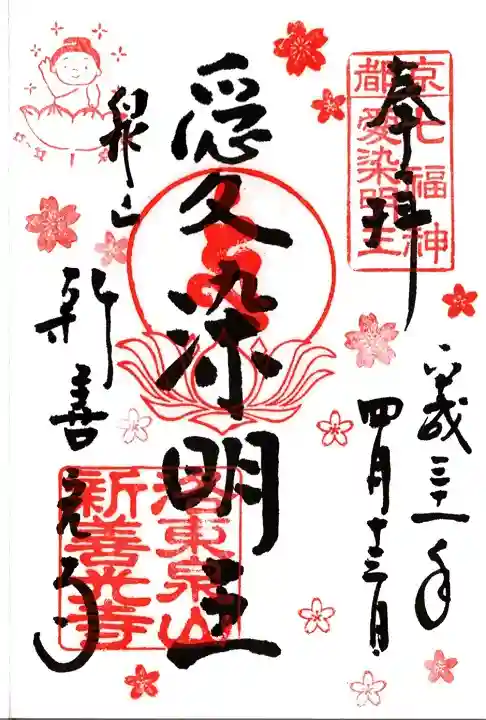 奉拝
京都七福神
愛染明王
平成三十一年
四月十三日
愛染明王
泉山
新善光寺
洛東泉山
新善光寺